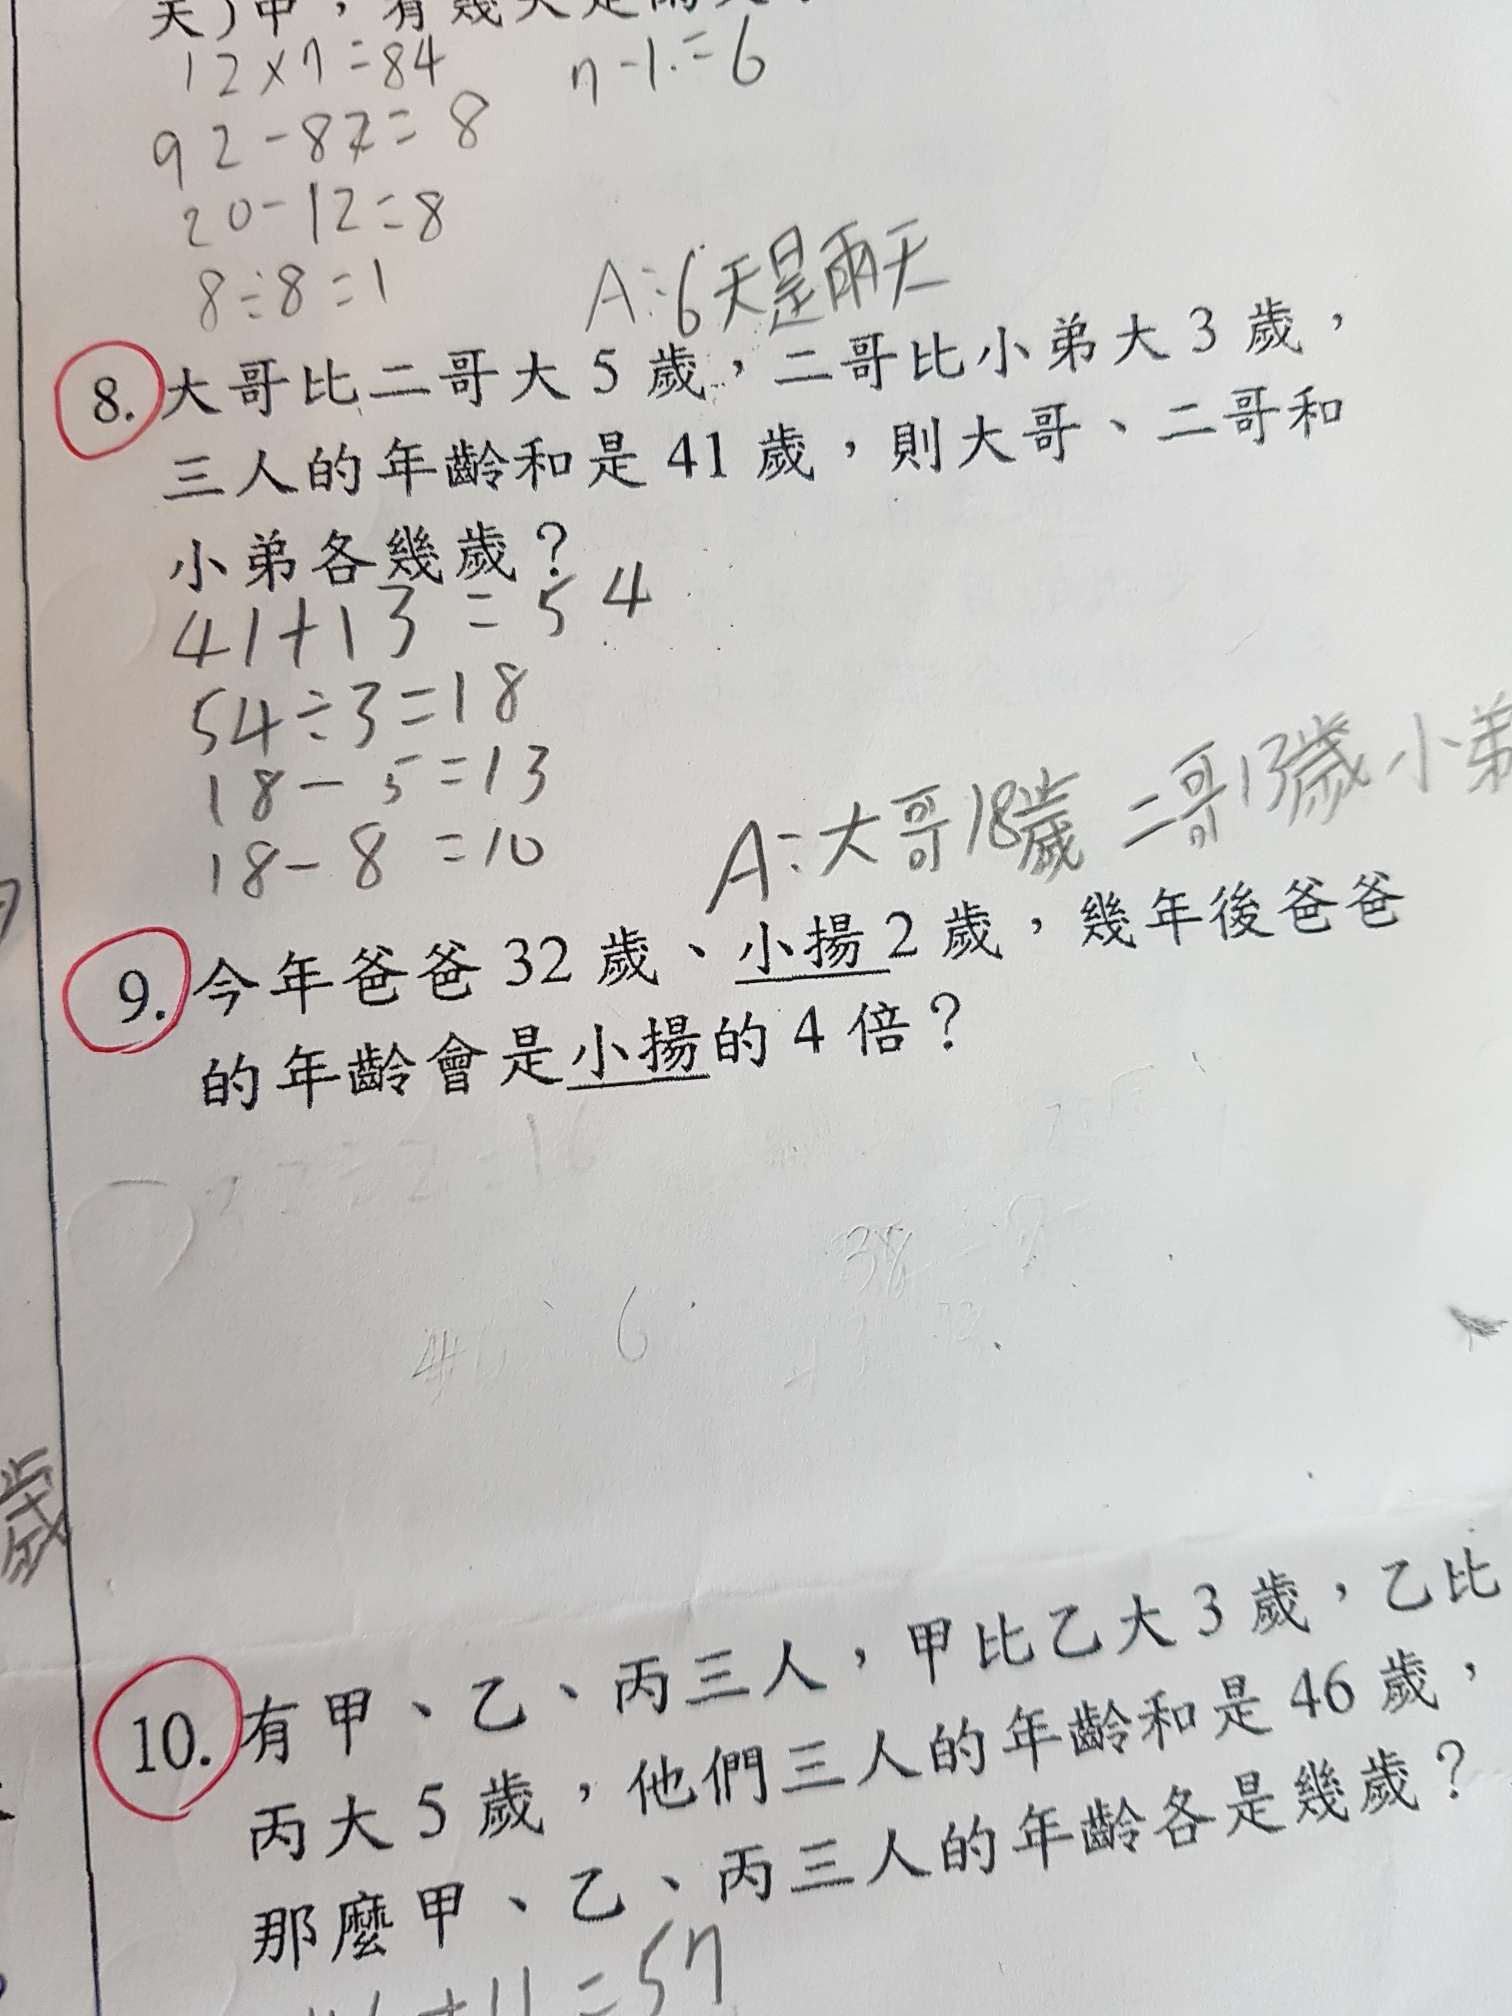 天)中，有幾天是雨天？
12×7=84 7-1=6
92-84=8
20-12=8
8÷8=1
A:6天是雨天
8. 大哥比二哥大 5 歲，二哥比小弟大 3 歲，
三人的年齡和是 41 歲，則大哥、二哥和
小弟各幾歲？
41+13=54
54÷3=18
18-5=13
18-8=10
A:大哥18歲 二哥13歲 小弟
9. 今年爸爸 32 歲、小揚 2 歲，幾年後爸爸
的年齡會是小揚的 4 倍？
歲
10. 有甲、乙、丙三人，甲比乙大 3 歲，乙比
丙大 5 歲，他們三人的年齡和是 46 歲，
那麼甲、乙、丙三人的年齡各是幾歲？
46+11=57